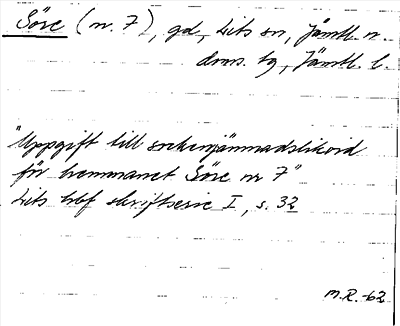 Söre (nr. 7), gd, Lits sn, Jämtl. n.
doms. tg, Jämtl. l.
"Uppgift till sockenjämnadslikvid
för hemmanet Söre nr 7"
Lits hbf skriftserie I, s. 32
M.R. -62